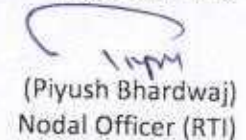 (Piyush Bhardwaj)
Nodal Officer (RTI)